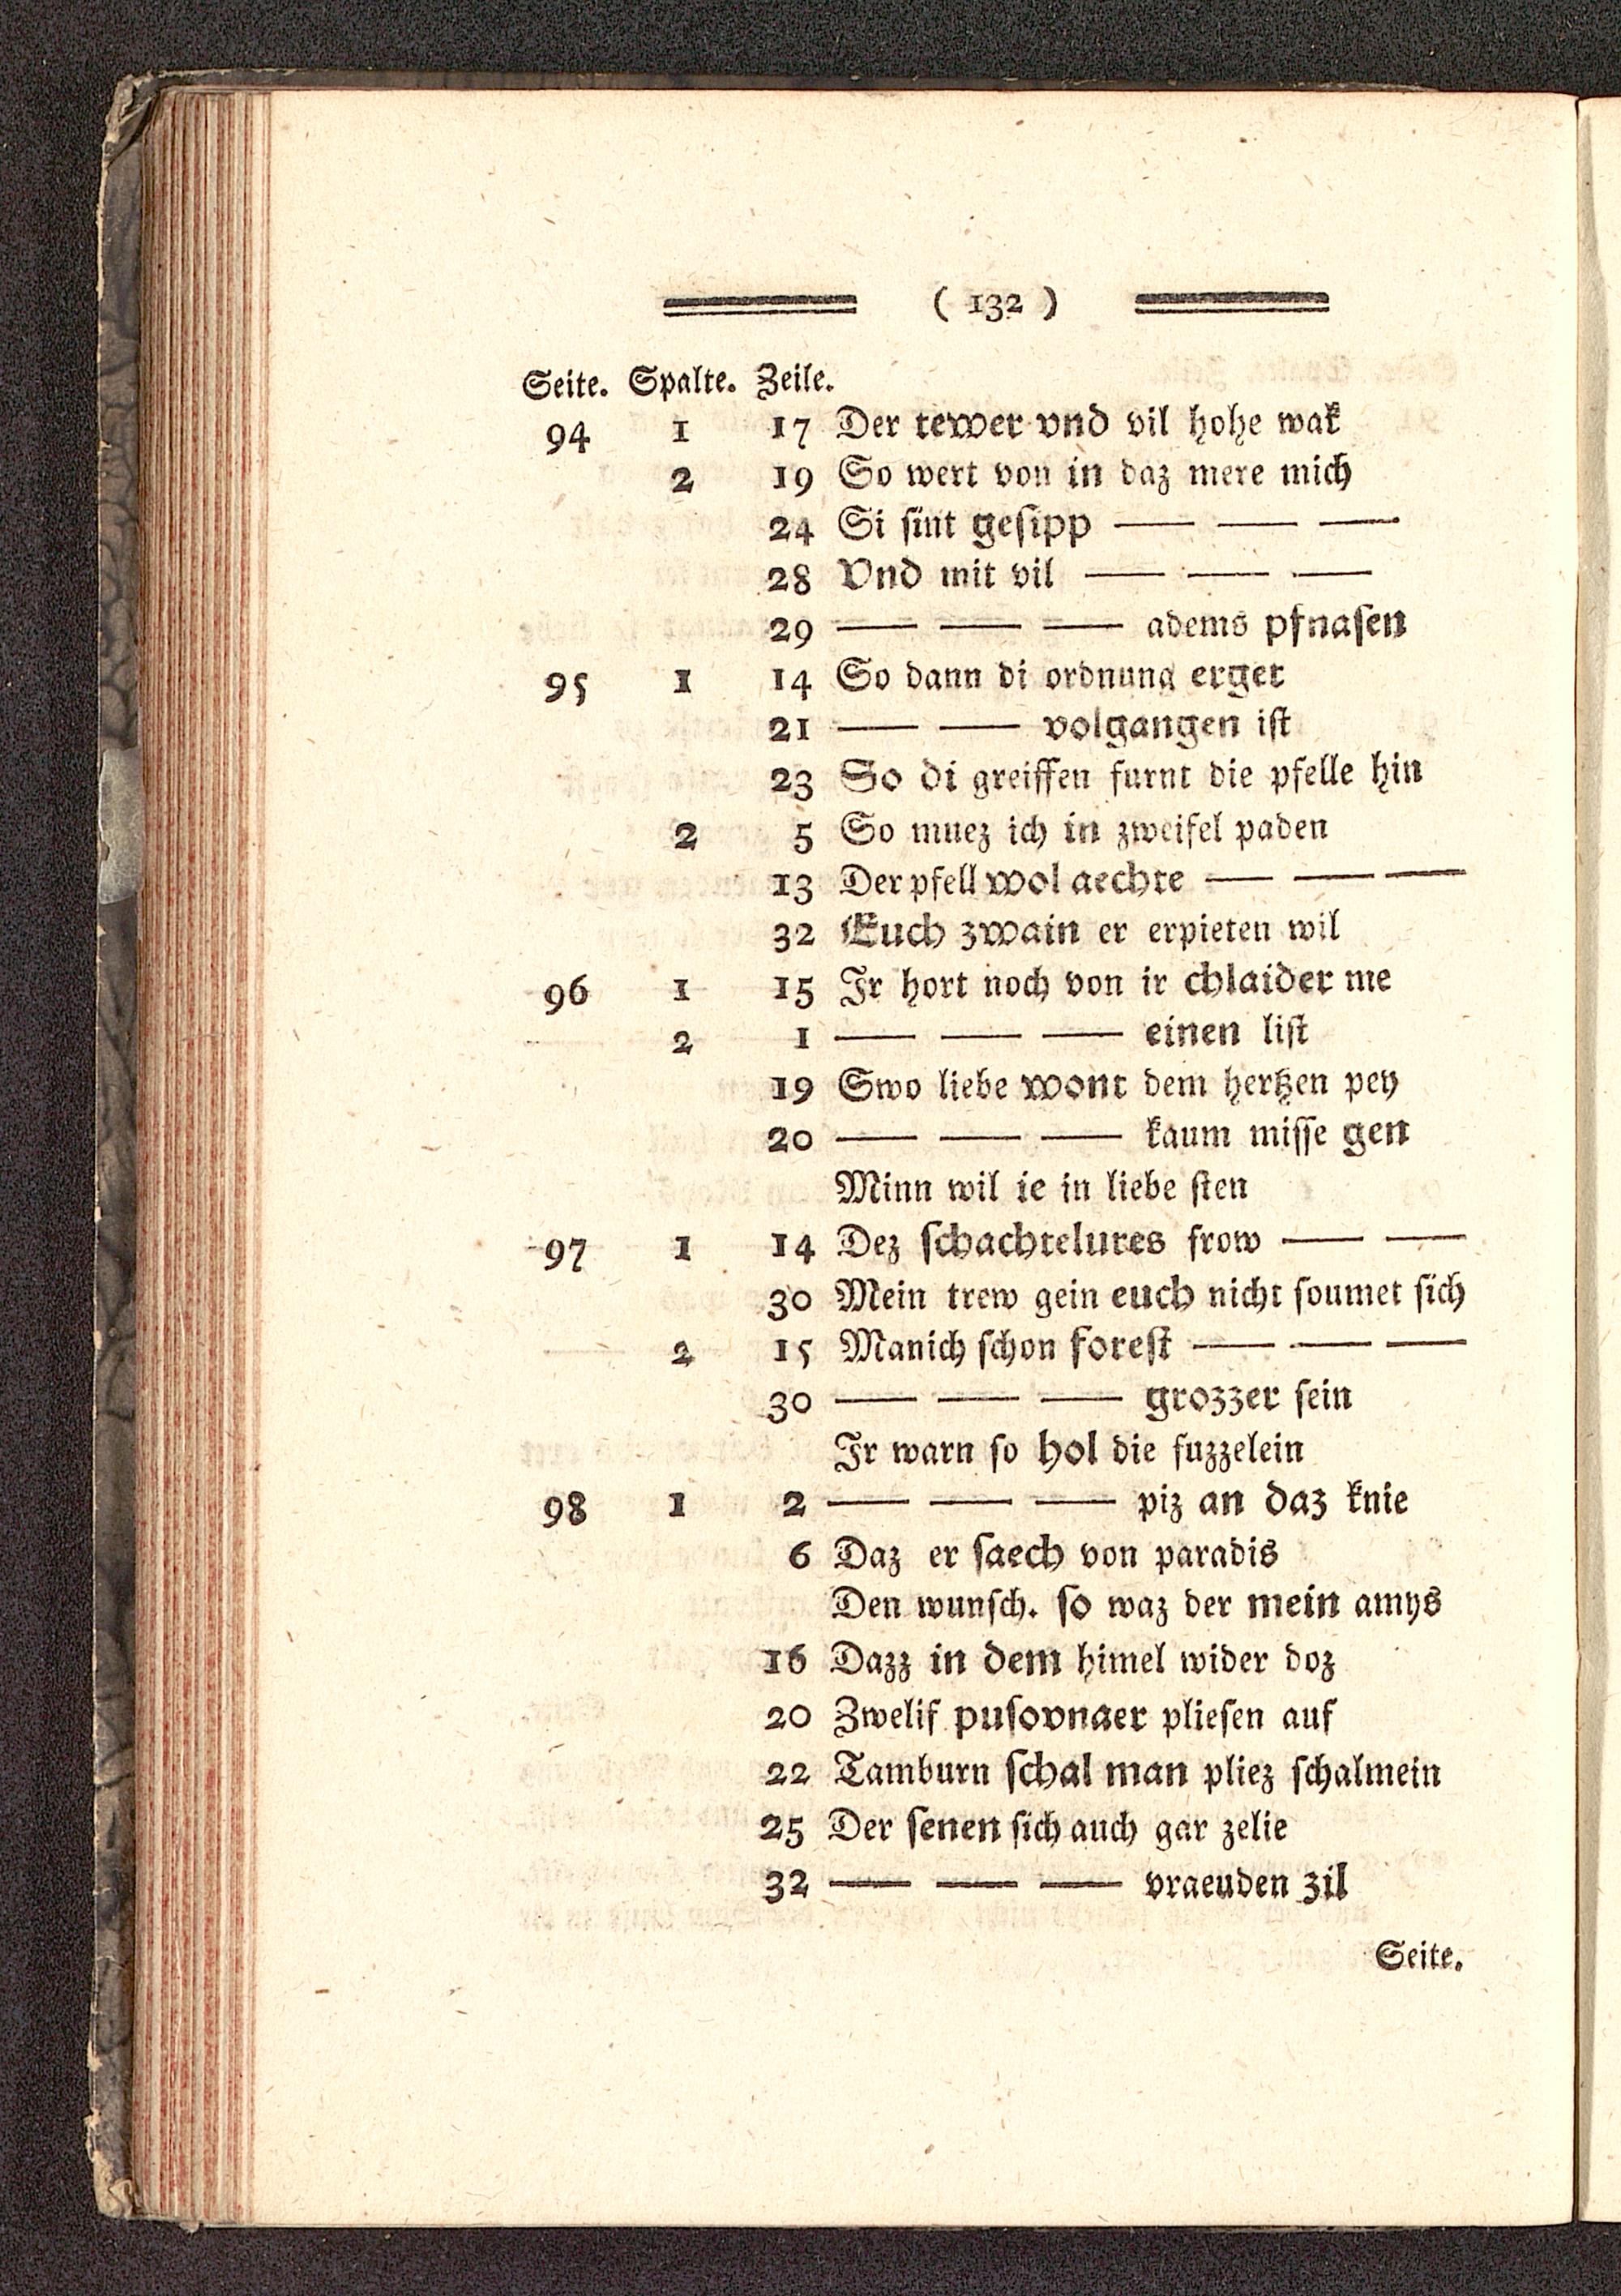 ( 132 )
Seite. Spalte. Zeile.
94 1 17 Der tewer vnd vil hohe wak
2 19 So wert von in daz mere mich
24 Si ſint geſipp — — —
28 Vnd mit vil — — —
29 — — — adems pfnaſen
95 1 14 So dann di ordnung erget
21 — — volgangen iſt
23 So di greiffen furnt die pfelle hin
2 5 So muez ich in zweifel paden
13 Der pfell wol aechte — — —
32 Euch zwain er erpieten wil
96 1 15 Ir hort noch von ir chlaider me
2 1 — — — einen liſt
19 Swo liebe wont dem hertzen pey
20 — — — kaum miſſe gen
Minn wil ie in liebe ſten
97 1 14 Dez ſchachtelures frow — —
30 Mein trew gein euch nicht ſoumet ſich
2 15 Manich ſchon foreſt — — —
30 — — — grozzer ſein
Ir warn ſo hol die fuzzelein
98 1 2 — — — piz an daz knie
6 Daz er ſaech von paradis
Den wunſch. ſo waz der mein amys
16 Dazz in dem himel wider doz
20 Zwelif puſovnaer plieſen auf
22 Tamburn ſchal man pliez ſchalmein
25 Der ſenen ſich auch gar zelie
32 — — — vraeuden zil
Seite.